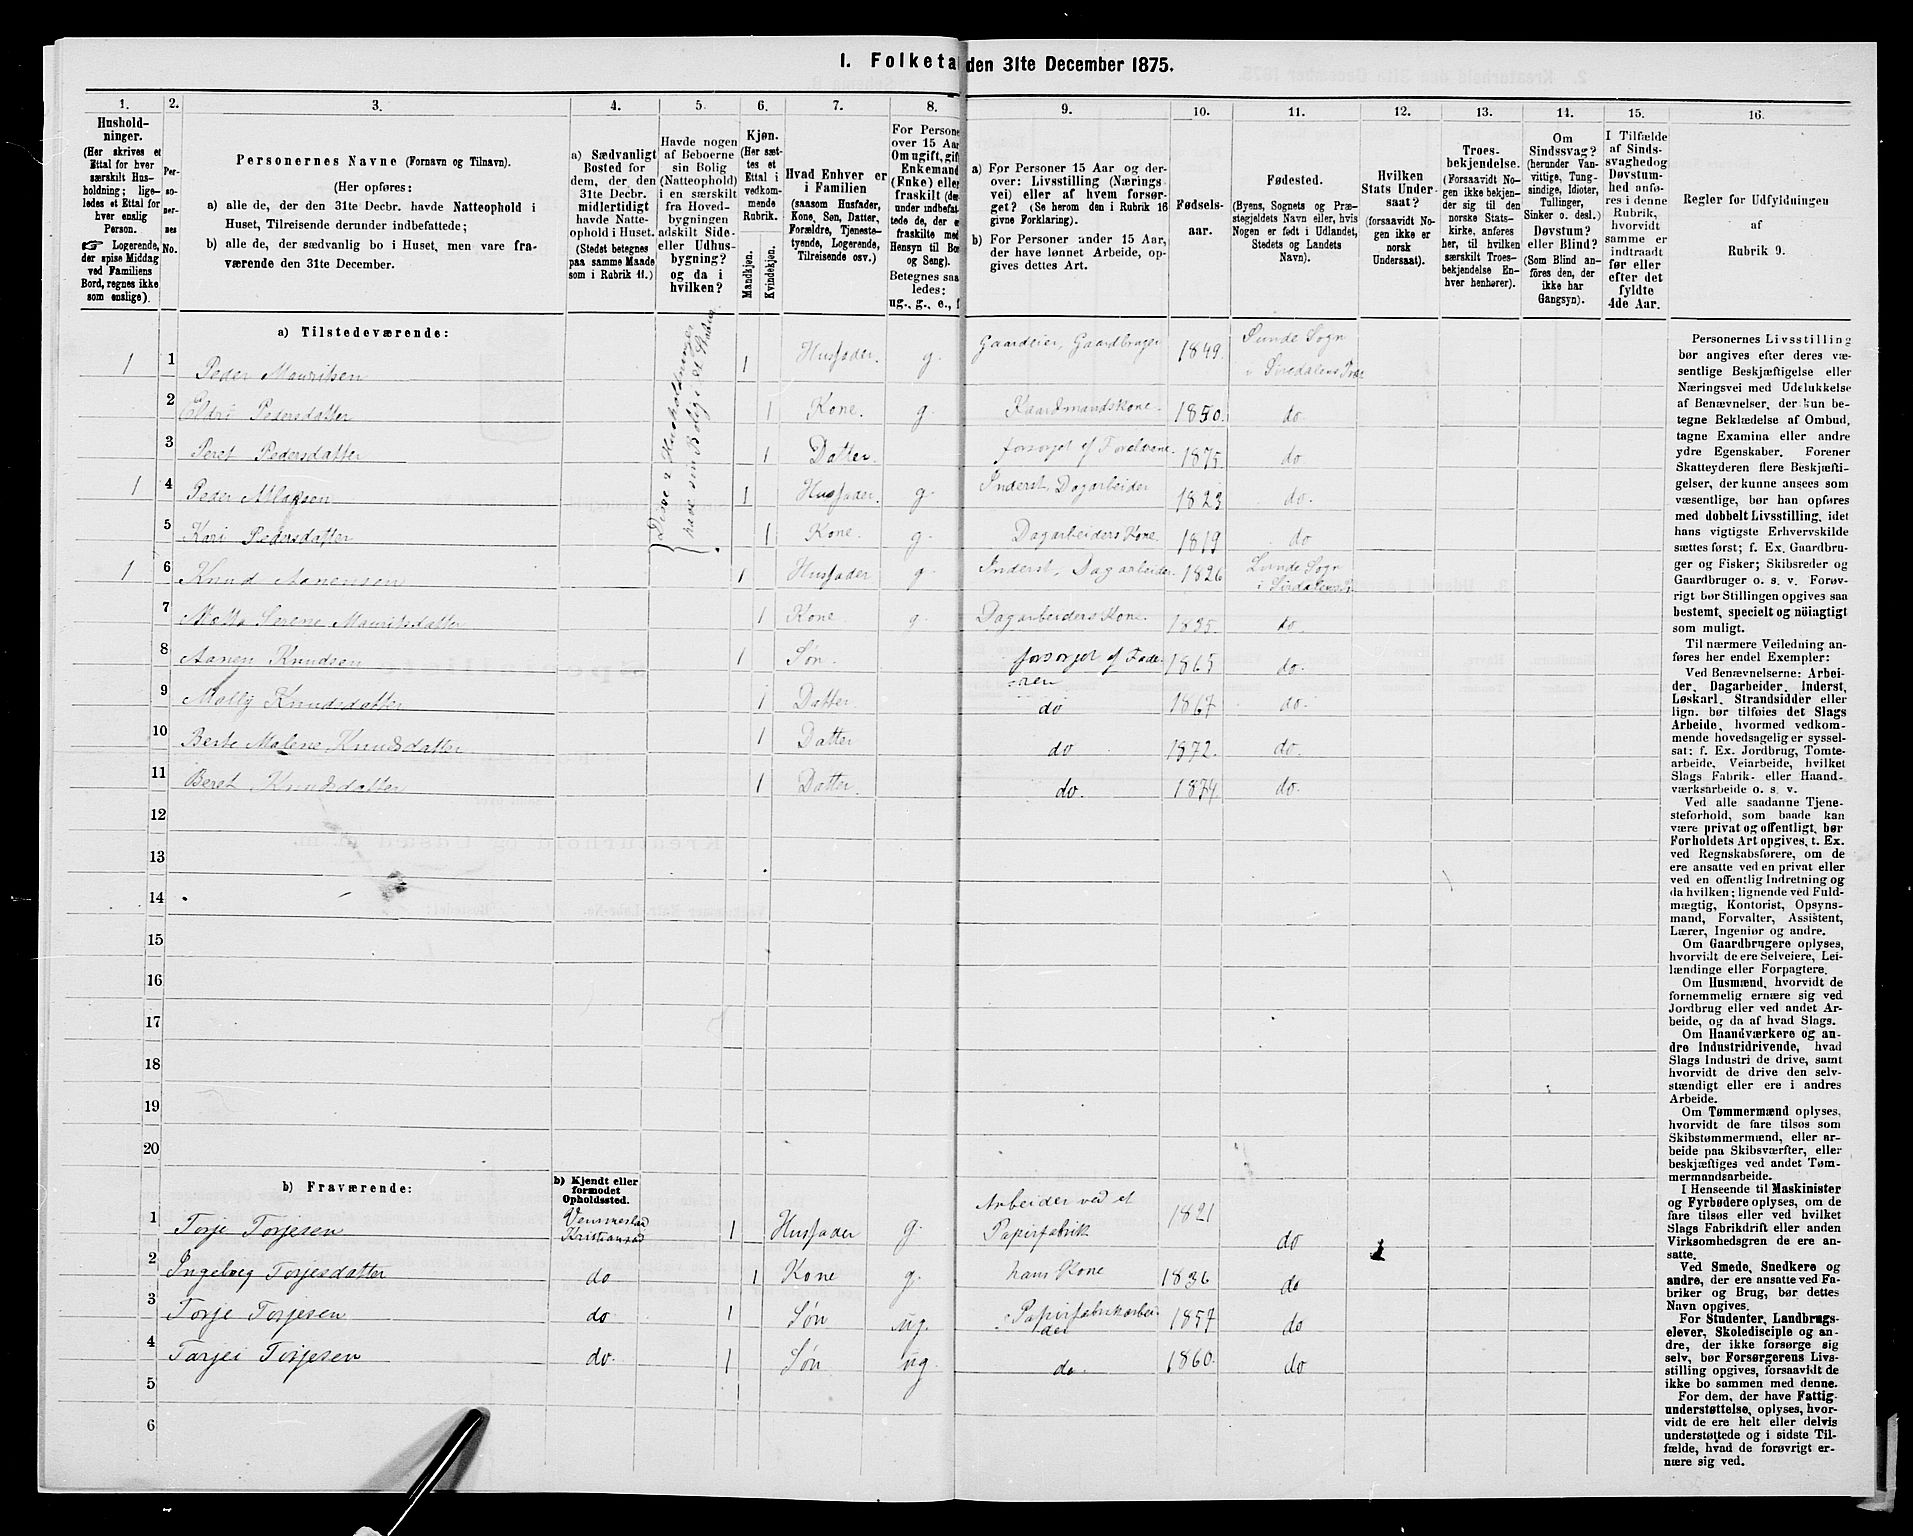 1. Folketa den 31te December 1875.
1. 2. 3. 4. 5. 6. 7. 8. 9. 10. 11. 12. 13. 14. 15. 16.
Hushold-
ninger.
(Her skrives et
Ettal for hver
særskilt Hus-
holdning; lige-
ledes et Ettal for
hver enslig
Person.
☞ Logerende,
der spise Middag
ved Familiens
Bord, regnes ikke
som enslige).
Per-
so-
ner-
nes
No.
Personernes Navne (Fornavn og Tilnavn).
(Her opføres:
a) alle de, der den 31te Decbr. havde Natteophold i
Huset, Tilreisende derunder indbefattede;
b) alle de, der sædvanlig bo i Huset, men vare fra-
værende den 31te December.
a) Sædvanligt
Bosted for
dem, der den
31te Decbr.
midlertidigt
havde Natte-
ophold i Huset.
(Stedet betegnes
paa samme Maade
som i Rubrik 11.)
Havde nogen
af Beboerne
sin Bolig
(Natteophold)
i en særskilt
fra Hoved-
bygningen
adskilt Side-
eller Udhus-
bygning?
og da i
hvilken?
Kjøn.
(Her sæt-
tes et
Ettal i
vedkom-
mende
Rubrik.
Mandkjøn.
Kvindekjøn.
Hvad Enhver er
i Familien
(saasom Husfader,
Kone, Søn, Datter,
Forældre, Tjeneste-
tyende, Logerende,
Tilreisende osv.)
For Persone
over 15 Aar
Om ugift, gift
Enkemand
(Enke) elle
fraskilt (de
under indbefat-
tede de, der e
fraskilte med
Hensyn til Bor
og Seng).
Betegnes saa
ledes:
ug., g., e., f
a) For Personer 15 Aar og der-
over: Livsstilling (Nærings-
vei) eller af hvem forsør-
get? (Se herom den i Rubrik 16
givne Forklaring).
b) For Personer under 15 Aar,
der have lønnet Arbeide, op-
gives dettes Art.
Fødsels-
aar.
Fødested.
(Byens, Sognets og Præ-
stegjeldets Navn eller, hvis
Nogen er født i Udlandet,
Stedets og Landets
Navn).
Hvilken
Stats Under-
saat?
(forsaavidt No-
gen ikke er
norsk
Undersaat).
Troes-
bekjendelse.
(Forsaavidt No-
gen ikke bekjen-
der sig til den
norske Stats-
kirke, anføres
her, til hvilken
særskilt Troes-
bekjendelse En-
hver henhører).
Om
Sindssvag?
(herunder Van-
vittige, Tung-
sindige, Idioter,
Tullinger,
Sinker o. desl.)
Døvstum?
eller Blind?
(Som Blind an-
føres den, der
ikke har
Gangsyn).
I Tilfælde
af Sinds-
svaghed og
Døvstum-
hed anfø-
res i denne
Rubrik,
hvorvidt
samme er
indtraadt
før eller
efter det
fyldte
4de Aar.
Regler for Udfyldningen
af
Rubrik 9.
a) Tilstedeværende:
Disse 2 Husholdninger
have sin Bolig i et
1 1 Peder Mauritsen 1 Husfader. g. Gaardeier, Gaardbruger 1849. Lunde Sogn
i Siredalens
2 Pedersdatter 1 Kone. g. Kaardmandskone. 1850. do.
3 Seret Pedersdatter 1 Datter. forsørget af Forældrene. 1875. do
1 4 Peder Atlaksen 1 Husfader. g. Inderst, Dagarbeider 1823 do.
5 Kari Pedersdatter 1 Kone. g. Dagarbeiders Kone. 1819 do
1 6 Knud Aanensen 1 Husfader g. Inderst, Dagarbeider. 1826 Lunde Sogn
i Siredalens
7 Metta Serene Mauritsdatter 1 Kone g. Dagarbeiders Kone. 1835. do.
8 Aanen Knudsen 1 Søn. forsørget af Fade-
ren 1865 do.
9 Mally Knudsdatter 1 Datter. do 1867 do.
10 Berte Malene Knudsdatter 1 Datter do 1872. do.
11 Beret Knudsdatter 1 Datter. do. 1874. do.
12
13
14
15
16
17
18
19
20
b) Fraværende:
b) Kjendt eller
formodet
Opholdssted.
1 Torje Torjesen Vennesla
Kristiansad 1 Husfader g. Arbeider ved et
Papirfabrik 1821 do
2 Ingeborg Torjesdatter do 1 Kone g. hans Kone 1836 do
3 Torje Torjesen do 1 Søn ug. Papirfabrikarbei-
der 1857 do
4 Tarjei Torjesen do. 1 Søn ug do. 1860. do
5
6
Personernes Livsstilling
bør angives efter deres væ-
sentlige Beskjæftigelse eller
Næringsvei med Udelukkelse
af Benævnelser, der kun be-
tegne Beklædelse af Ombud,
tagne Examina eller andre
ydre Egenskaber. Forener
Skatteyderen flere Beskjæfti-
gelser, der kunne ansees som
væsentlige, bør han opføres
med dobbelt Livsstilling, idet
hans vigtigste Erhvervskilde
sættes først; f. Ex. Gaardbru-
ger og Fisker; Skibsreder og
Gaardbruger o. s. v. Forøv-
rigt bør Stillingen opgives saa
bestemt, specielt og nöiagtigt
som muligt.
Til nærmere Veiledning an-
føres her endel Exempler:
Ved Benævnelserne: Arbei-
der, Dagarbeider, Inderst,
Løskarl, Strandsidder eller
lign. bør tilføies det Slags
Arbeide, hvormed vedkom-
mende hovedsagelig er syssel-
sat; f. Ex. Jordbrug, Tomte-
arbeide, Veiarbeide, hvilket
Slags Fabrik- eller Haand-
værksarbeide o. s. v.
Ved alle saadanne Tjene-
steforhold, som baade kan
være privat og offentligt, bør
Forholdets Art opgives, t. Ex.
ved Regnskabsførere, om de
ere ansatte ved en privat eller
ved en offentlig Indretning og
da hvilken; lignende ved Fuld-
mægtig, Kontorist, Opsyns-
mand, Forvalter, Assistent,
Lærer, Ingeniør og andre.
Om Gaardbrugere oplyses,
hvorvidt de ere Selveiere, Lei-
lændinge eller Forpagtere.
Om Husmænd, hvorvidt de
fornemmelig ernære sig ved
Jordbrug eller ved andet Ar-
beide, og da af hvad Slags.
Om Haandværkere og an-
dre Industridrivende, hvad
Slags Industri de drive, samt
hvorvidt de drive den selv-
stændigt eller ere i andres
Arbeide.
Om Tømmermænd oplyses,
hvorvidt de fare tilsøs som
Skibstømmermænd, eller ar-
beide paa Skibsværfter, eller
beskjæftiges ved andet Tøm-
mermandsarbeide.
I Henseende til Maskinister
og Fyrbødere oplyses, om de
fare tilsøs eller ved hvilket
Slags Fabrikdrift eller anden
Virksomhedsgren de ere an-
satte.
Ved Smede, Snedkere og
andre, der ere ansatte ved Fa-
briker og Brug, bør dettes
Navn opgives.
For Studenter, Landbrugs-
elever, Skoledisciple og an-
dre, der ikke forsørge sig
selv, bør Forsørgerens Livs-
stilling opgives, forsaavidt de
ikke bo sammen med denne.
For dem, der have Fattig-
understøttelse, oplyses, hvor-
vidt de ere helt eller delvis
understøttede og i sidste Til-
fælde, hvad de forøvrigt er-
nære sig ved.